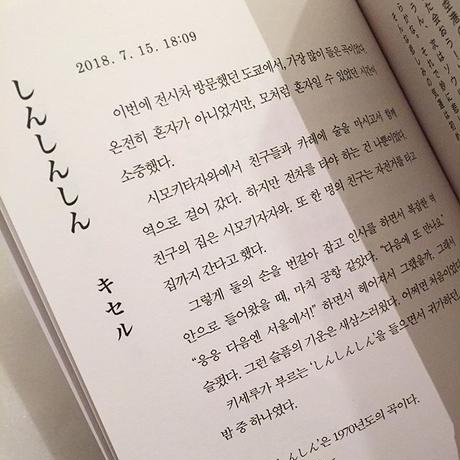 2018. 7. 15. 18:09
しんしんしん
キセル
이번에 전시차 방문했던 도쿄에서, 가장 많이 들은 곡이었다.
온전히 혼자가 아니었지만, 모처럼 혼자일 수 있었던 시간이
소중했다.
시모키타자와에서 친구들과 카레에 술을 마시고서 함께
역으로 걸어 갔다. 하지만 전차를 타야 하는 건 나뿐이었다.
친구의 집은 시모키자자와, 또 한 명의 친구는 자전거를 타고
집까지 간다고 했다.
그렇게 둘의 손을 번갈아 잡고 인사를 하면서 복잡한 역
안으로 들어왔을 때, 마치 공항 같았다. “다음에 또 만나요”
“응응 다음엔 서울에서!” 하면서 헤어져서 그랬을까. 그래서
슬펐다. 그런 슬픔의 기운은 새삼스러웠다. 어쩌면 처음이었다.
키세루가 부르는 ‘しんしんしん’을 들으면서 귀가하던,
밤 중 하나였다.
んしんしん’은 1970년도의 곡이다.